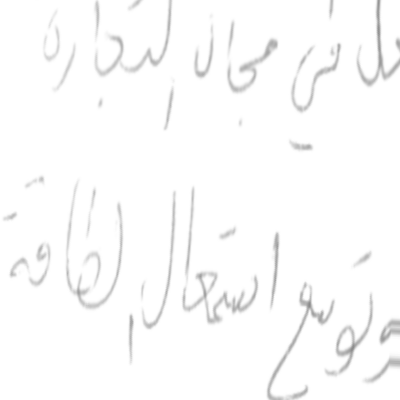 في مجال التجارة
وتوسع استعمال الطاقة